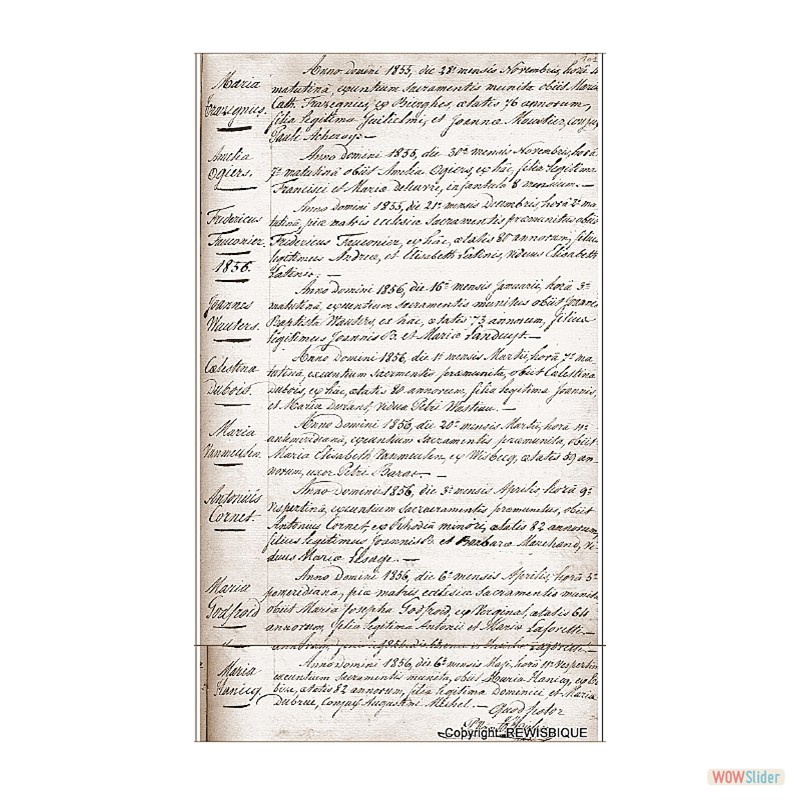 Maria
Trazegnies.
Anno domini 1855, die 28ª mensis Novembris, horâ
matutinâ, exeuntium Sacramentis munita obiit Maria
Cath. Trazegnies, ex Bierghes, ætatis 76 annorum,
filia legitima Guilielmi, et Joannæ Moustier, conjux
Pauli Acheroy.—
Amelia
Ogiers.
Anno Domini 1855, die 30ª mensis Novembris, horâ
7ª matutinâ obiit Amelia Ogiers, ex hâc, filia legitima
Francisci et Maria deluvre, infantula 8 mensium.—
Fredericus
Fauconier.
Anno domini 1855, die 21ª mensis Decembris, horâ 2ª ma-
tutinâ, piæ matris ecclesiæ Sacramentis præmunitus obiit
Fredericus Fauconier, ex hâc, ætatis 80 annorum, filius
legitimus Andreæ, et Elisabeth Latinis, viduus Elisabeth
Latinis.—
1856.
Joannes
Wauters.
Anno Domini 1856, die 16ª mensis Januarii, horâ 5ª
matutinâ, exeuntium Sacramentis munitus obiit Joannes
Baptista Wauters, ex hâc, ætatis 73 annorum, filius
legitimus Joannis B. et Maria Landuyt.—
Cælestina
dubois.
Anno Domini 1856, die 1ª mensis Martii, horâ 7ª ma-
tutinâ, exeuntium sacramentis præmunita, obiit Cælestina
dubois, ex hâc, ætatis 80 annorum, filia legitima Joannis
et Maria Durant, vidua Petri Mastiau.—
Maria
Vanmeulen.
Anno Domini 1856, die 20ª mensis Martii, horâ 11ª
antemeridianâ, exeuntium Sacramentis præmunita, obiit
Maria Elisabeth Vanmeulen, ex Wisbecq, ætatis 59 an-
norum, uxor Petri Buras.—
Antonius
Cornet.
Anno Domini 1856, die 3ª mensis Aprilis, horâ 9ª
vespertinâ, exeuntium Sacracramentis præmunitus, obiit
Antonius Cornet, ex Rhodiâ minori, ætatis 82 annorum,
filius legitimus Joannis B. et Barbara Marchand, vi-
duus Maria Elsage.—
Maria
Godfroid
Anno Domini 1856, die 6ª mensis Aprilis, horâ 5ª
pomeridianâ, piæ matris ecclesiæ Sacramentis munita
obiit Maria Josepha Godfroid, ex Virginal, ætatis 64
annorum, filia legitima Antonii et Maria Laforett.—
Maria
Hanicq.
Anno Domini 1856, die 6ª mensis Maji, horâ 11ª vespertinâ
exeuntium sacramentis munita, obiit Maria Hanicq,
ætatis 82 annorum, filia legitima Dominici et Maria
Dubrue, Conjux Augustini Michel.—
Quod testor
Copyright REWISBIQUE
WOWSlider